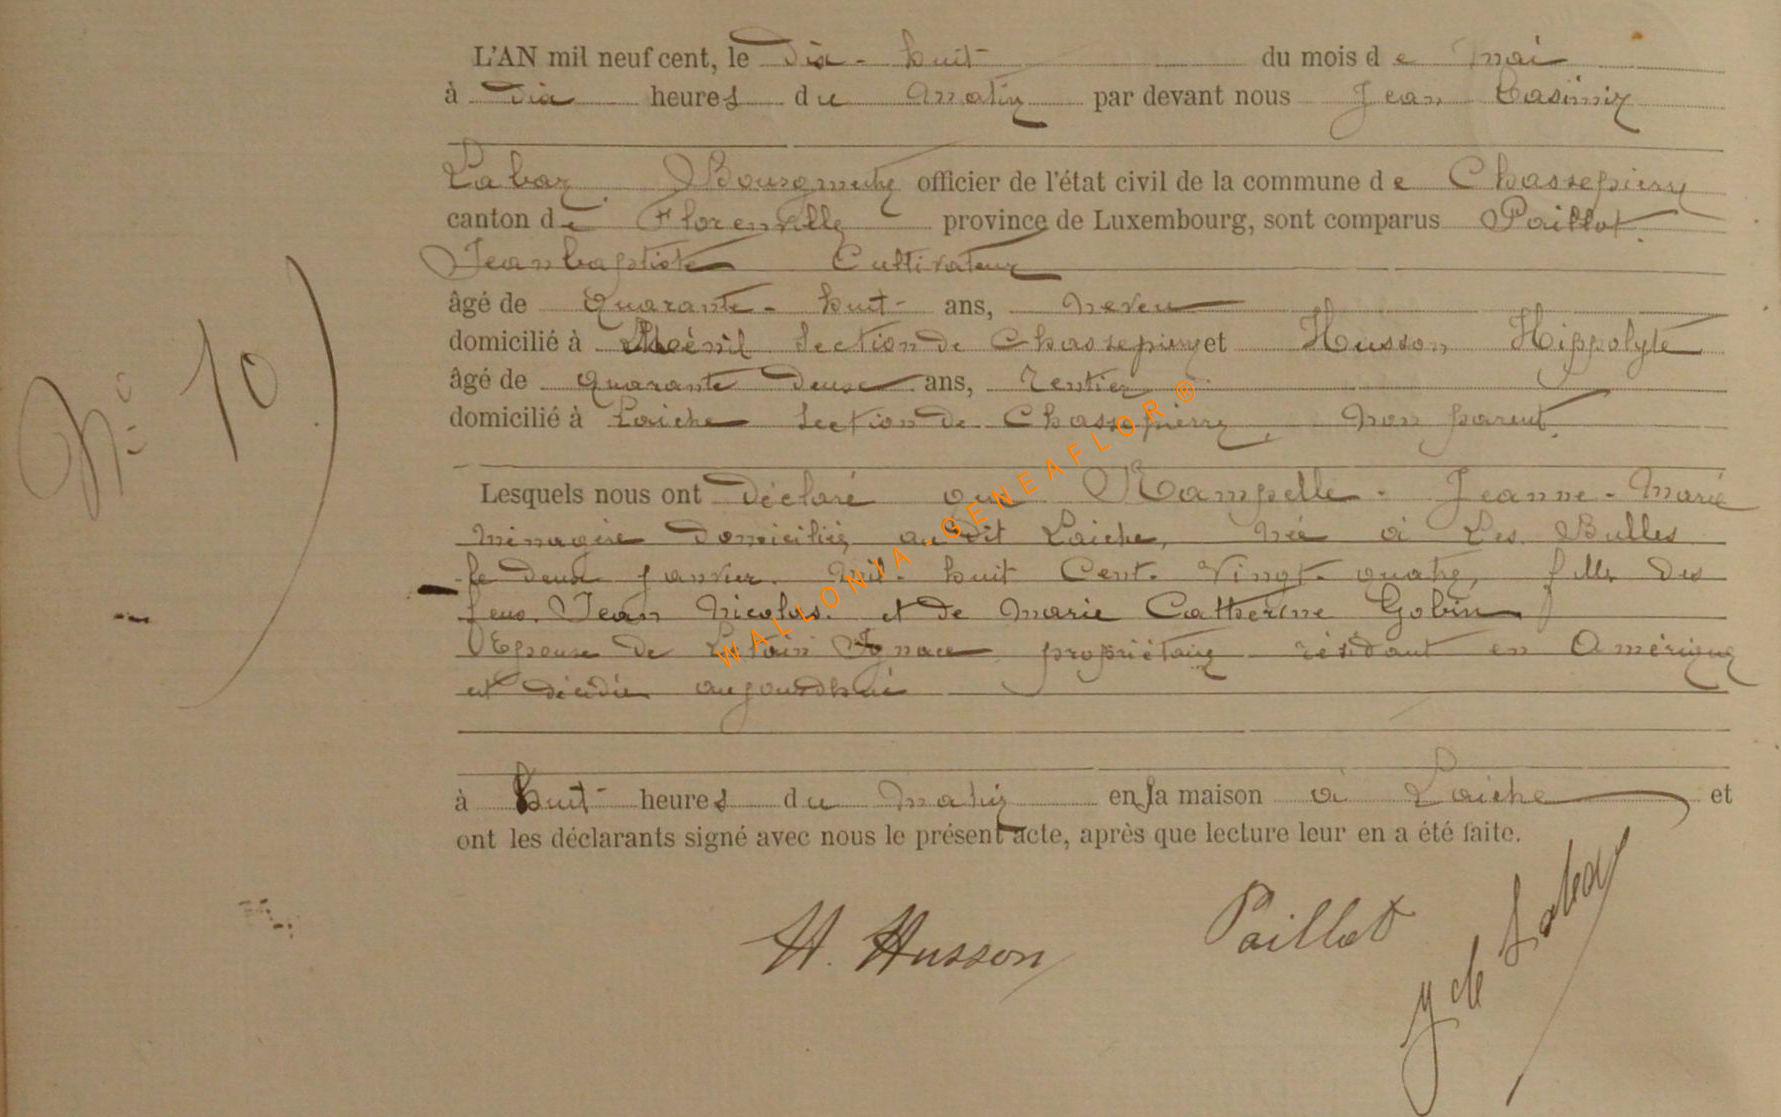 N° 10
L'AN mil neuf cent, le dix-huit du mois de mai
à dix heures du matin par devant nous Jean Casimir
Labar Bourgmestre officier de l'état civil de la commune de Chassepierre
canton de Florenville province de Luxembourg, sont comparus Paillot
Jean baptiste Cultivateur
âgé de quarante-huit ans, neveu
domicilié à Menil Section de Chassepierre et Husson Hippolyte
âgé de quarante deux ans, rentier
domicilié à Laiche Section de Chassepierre, non parent.
Lesquels nous ont déclaré que Rampelle-Jeanne-Marie
ménagère domiciliée au dit Laiche, née à Les Bulles
le deux janvier mil-huit Cent-Vingt-quatre, fille des
feus Jean Nicolas et de Marie Catherine Gobin
Epouse de Ignace propriétaire résidant en Amérique
est décédée aujourdhui
à huit heures du matin en sa maison à Laiche et
ont les déclarants signé avec nous le présent acte, après que lecture leur en a été faite.
H. Husson Paillot
J de Labar
WALLONIA-GENEAFLOR®